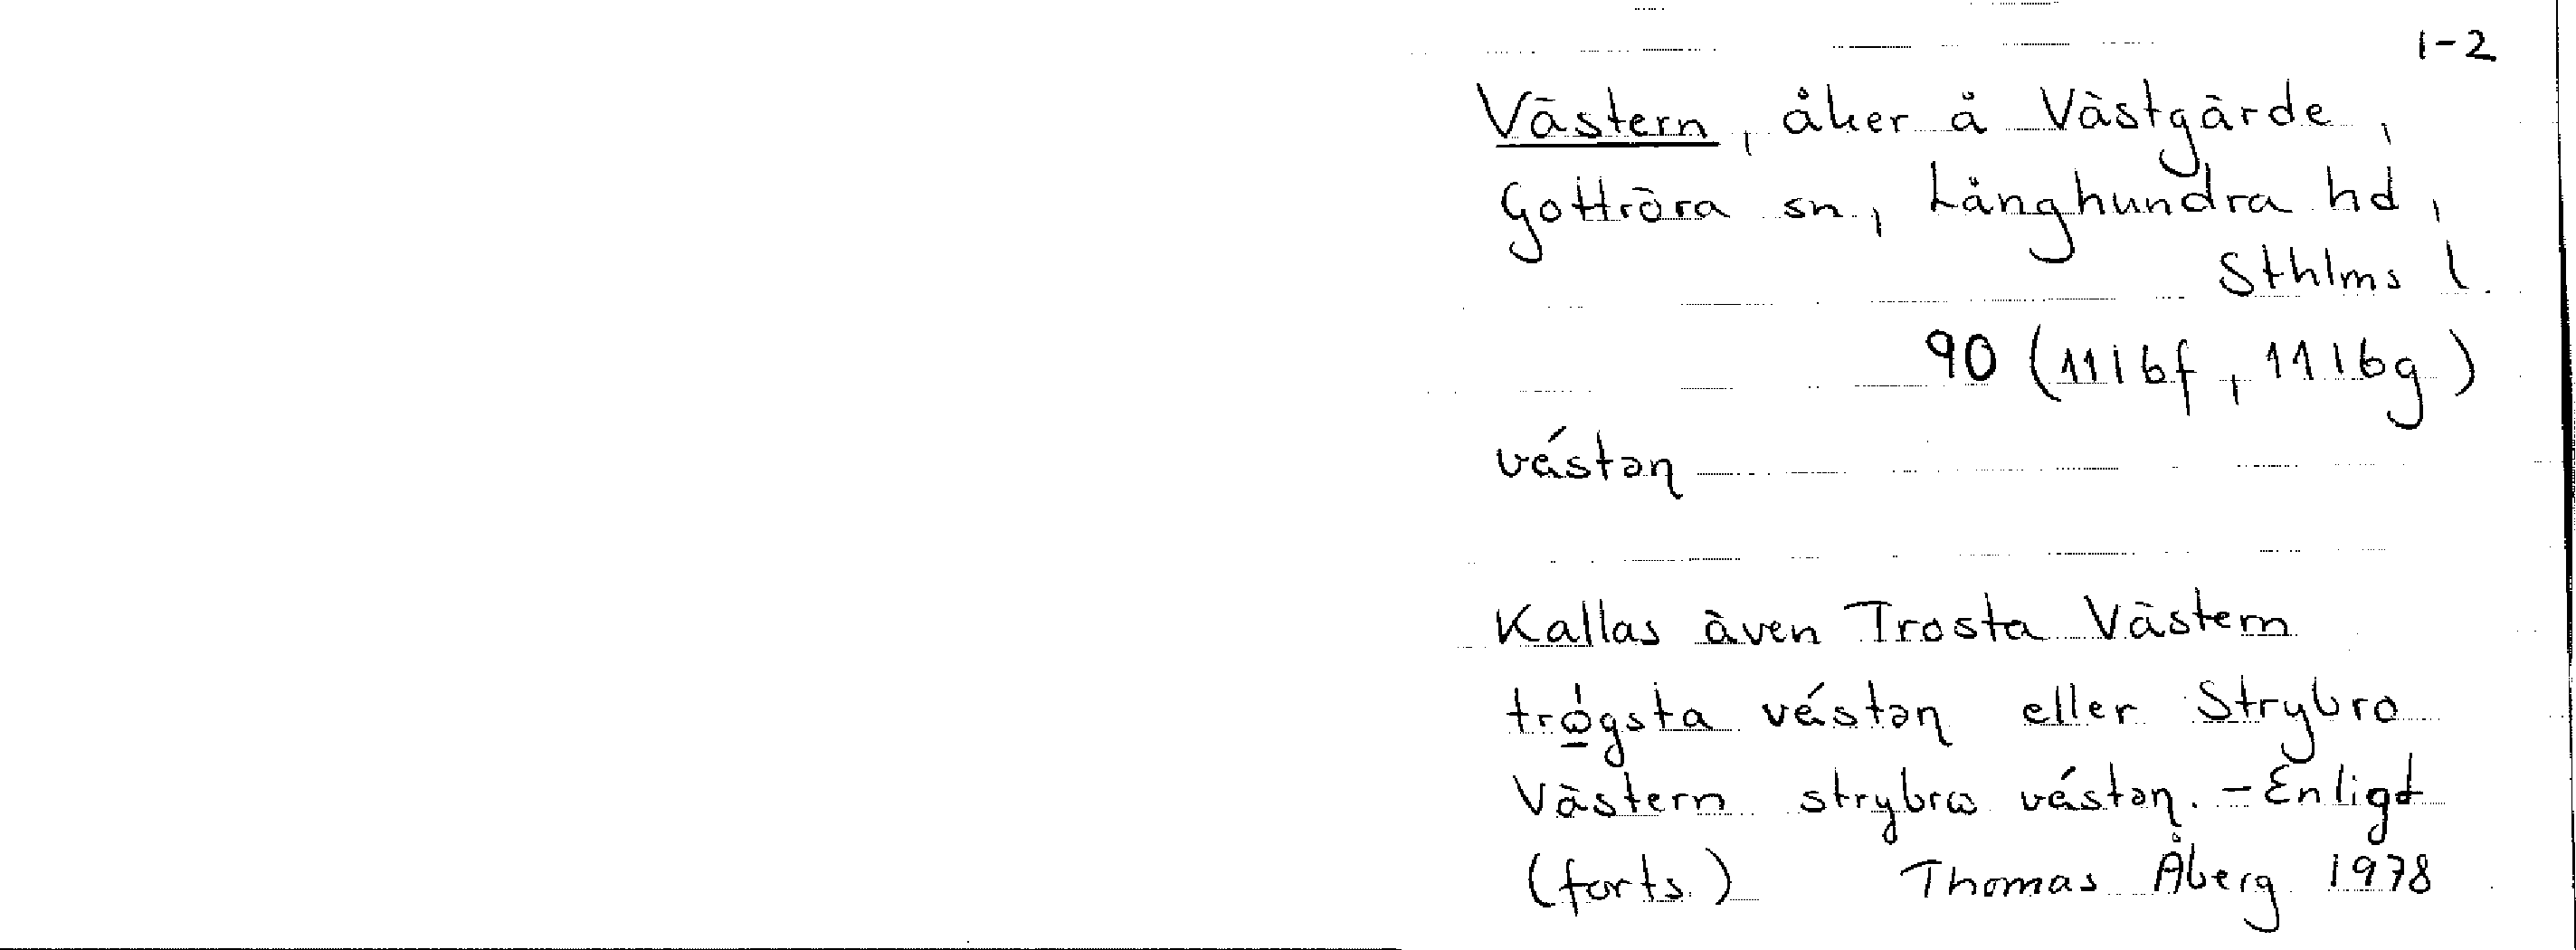 1-2
Västern, åker å Västgärde,
Gottröra sn, Långhundra hd,
Sthlms l.
90 (11I6f, 11I6g)
véstəɳ
Kallas även Trosta Västern
trǫ́gsta véstəɳ eller Strybro
Västern strybrɷ véstəɳ. - Enligt
(forts.) Thomas Åberg 1978